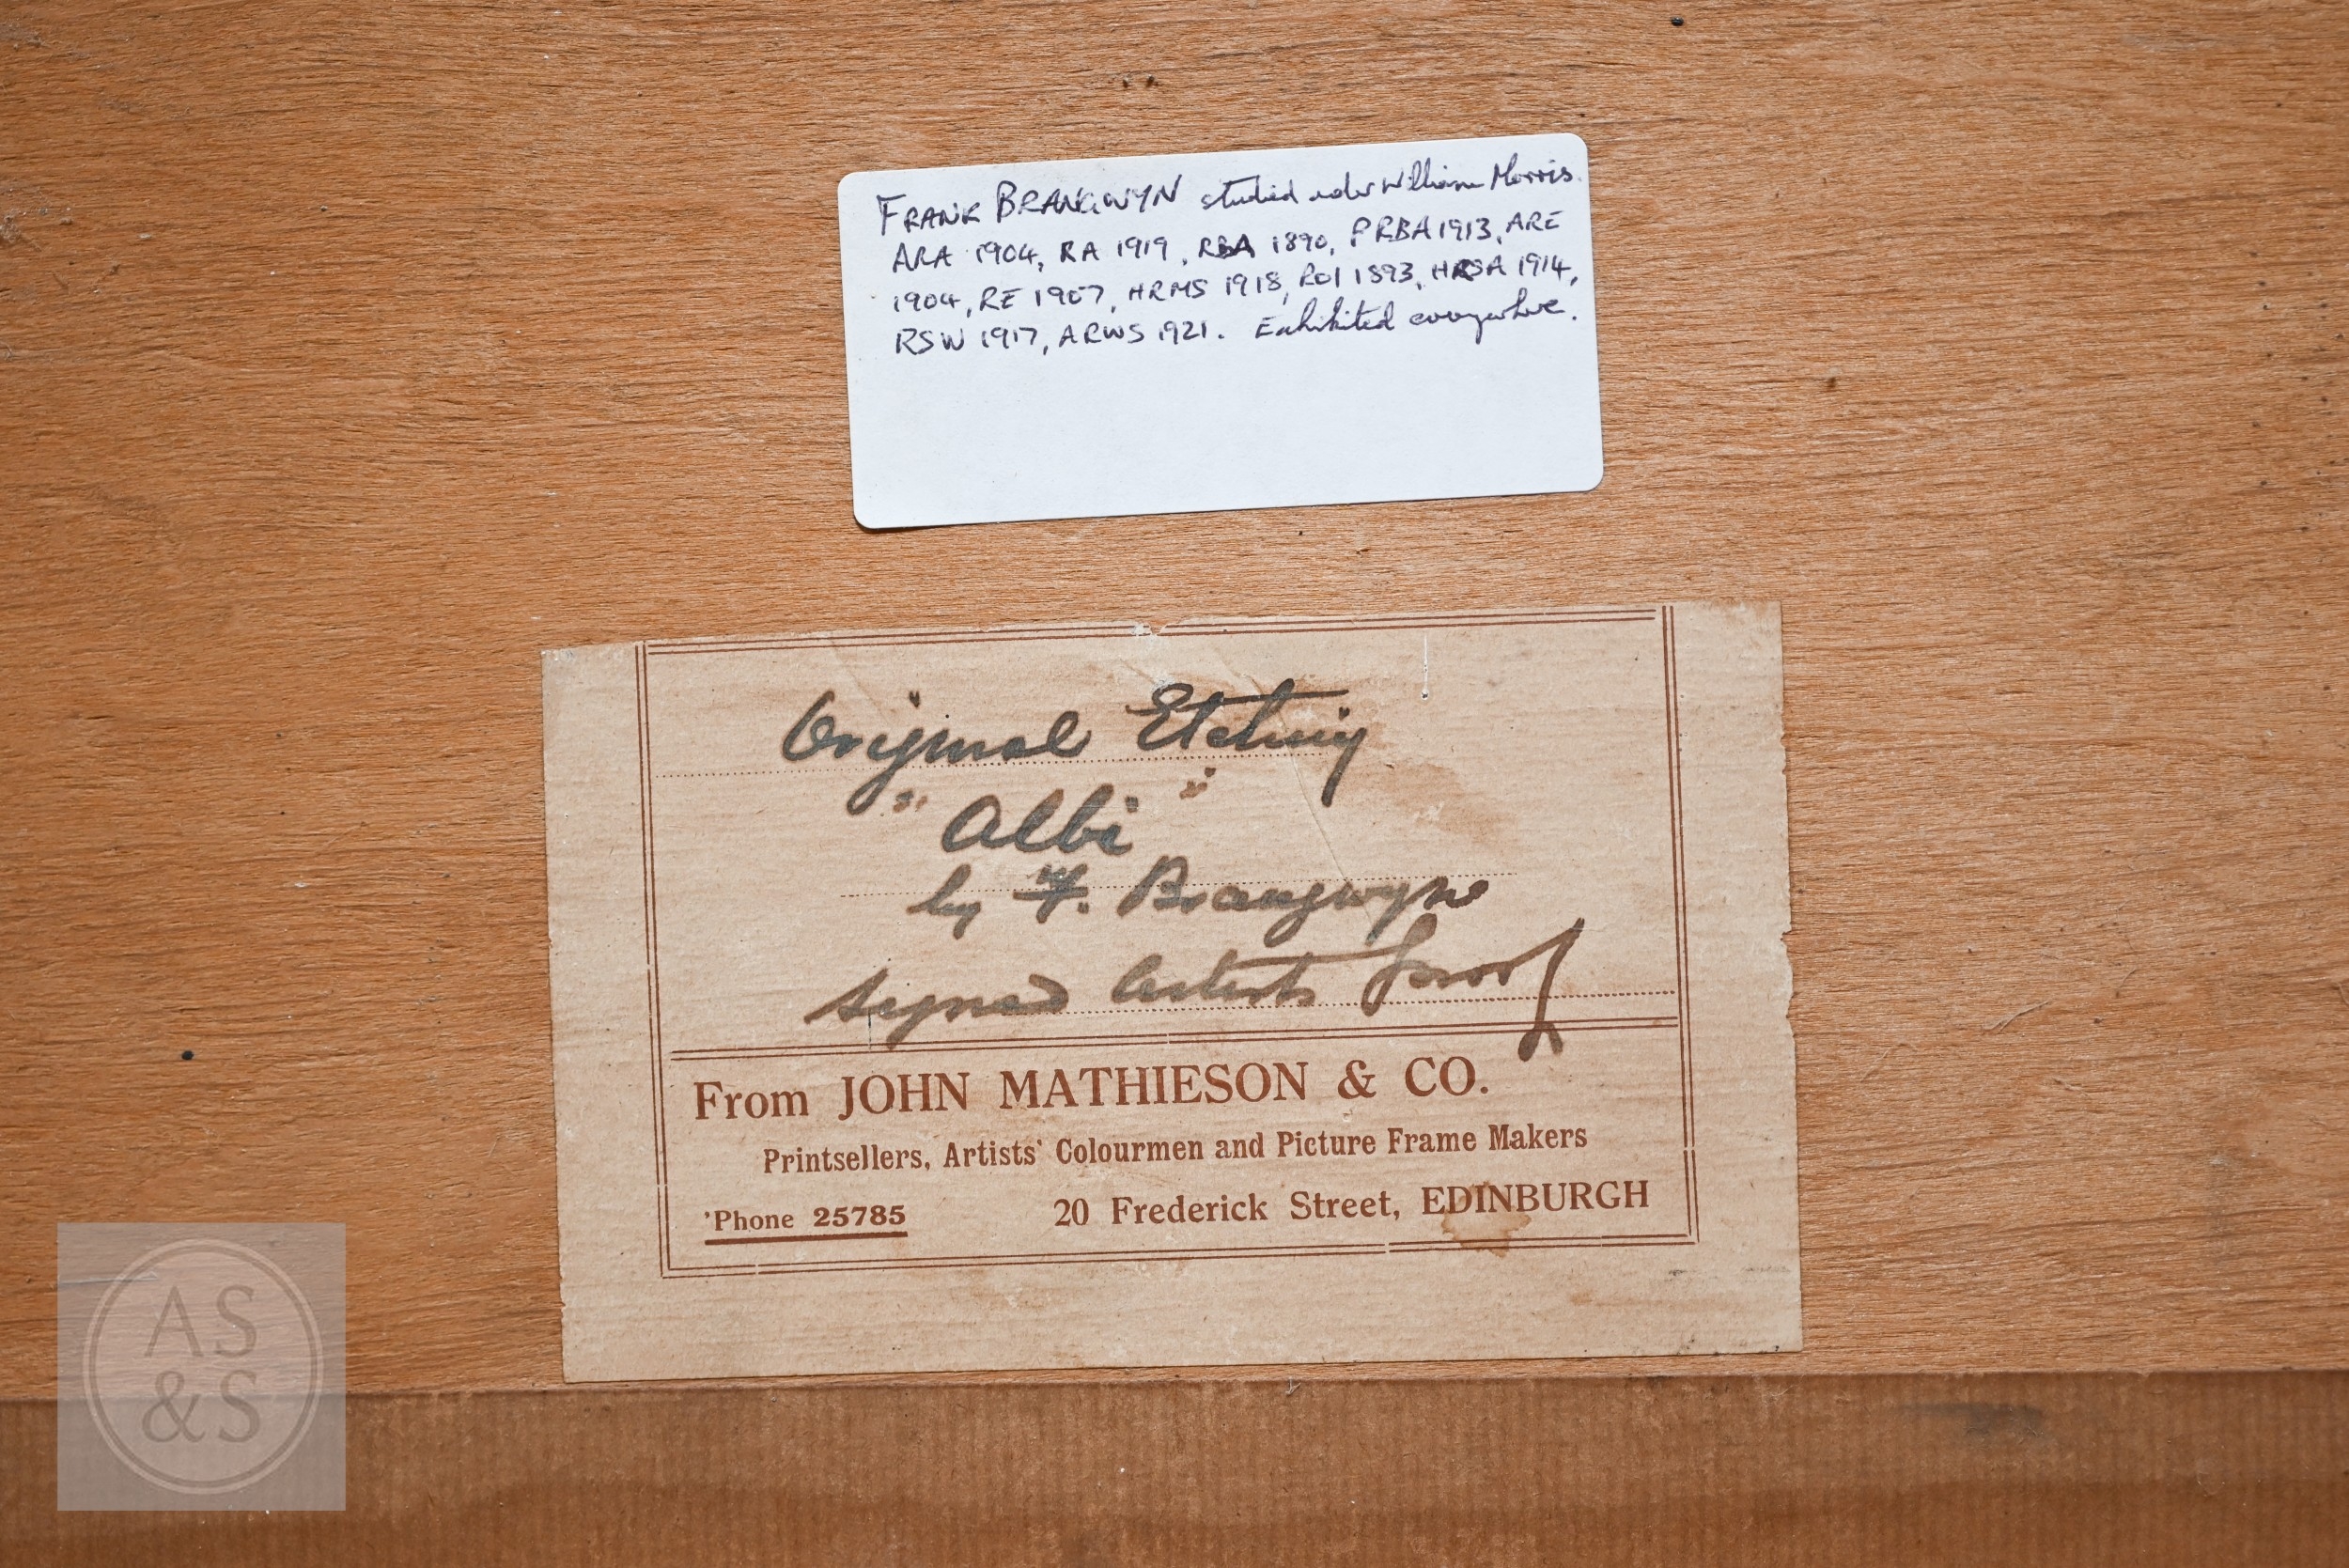 FRANK BRANGWYN studied under William Morris.
ARA 1904, RA 1919, RBA 1890, PRBA 1913, ARE
1904, RE 1907, HRMS 1918, ROI 1893, HRSA 1914,
RSW 1917, ARWS 1921. Exhibited everywhere.
Original Etching
"Albi"
by F. Brangwyn
Signed Artists Proof
From JOHN MATHIESON & CO.
Printsellers, Artists' Colourmen and Picture Frame Makers
'Phone 25785 20 Frederick Street, EDINBURGH
AS
&S